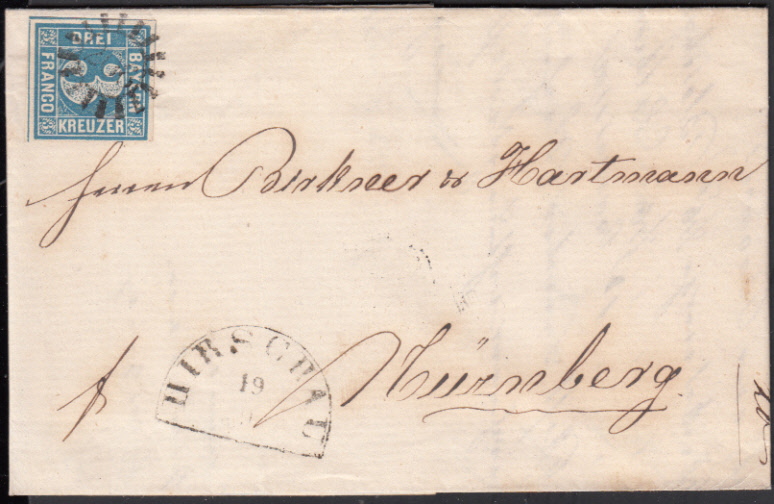 DREI
BAYERN
FRANCO
KREUZER
3
Herren Birkner & Hartmann
HIRSCHAU
19
Nürnberg